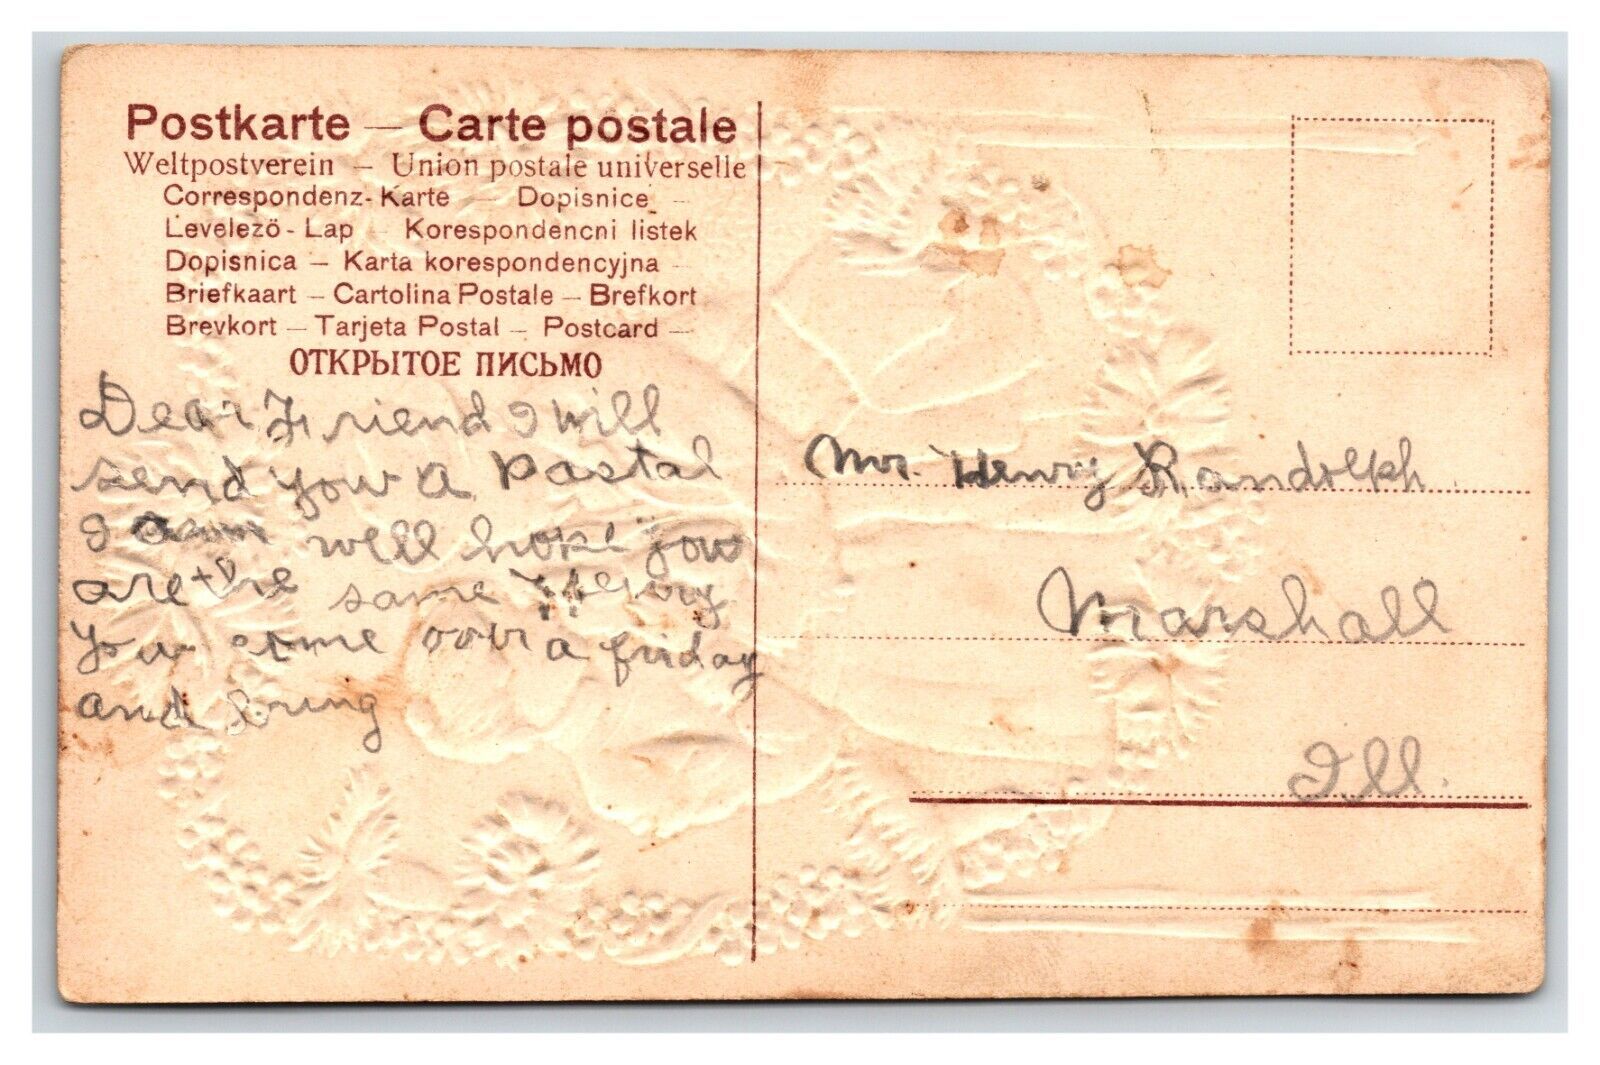 Postkarte — Carte postale
Weltpostverein — Union postale universelle
Correspondenz-Karte — Dopisnice —
Levelező-Lap — Korespondencni listek
Dopisnica — Karta korespondencyjna —
Briefkaart — Cartolina Postale — Brefkort
Brevkort — Tarjeta Postal — Postcard —
ОТКРЫТОЕ ПИСЬМО
Dear Friend I will
send you a Postal
I am well hope you
are the same Henry
You come over a friday
and bring
Mr. Henry Randolph
Marshall
Ill.